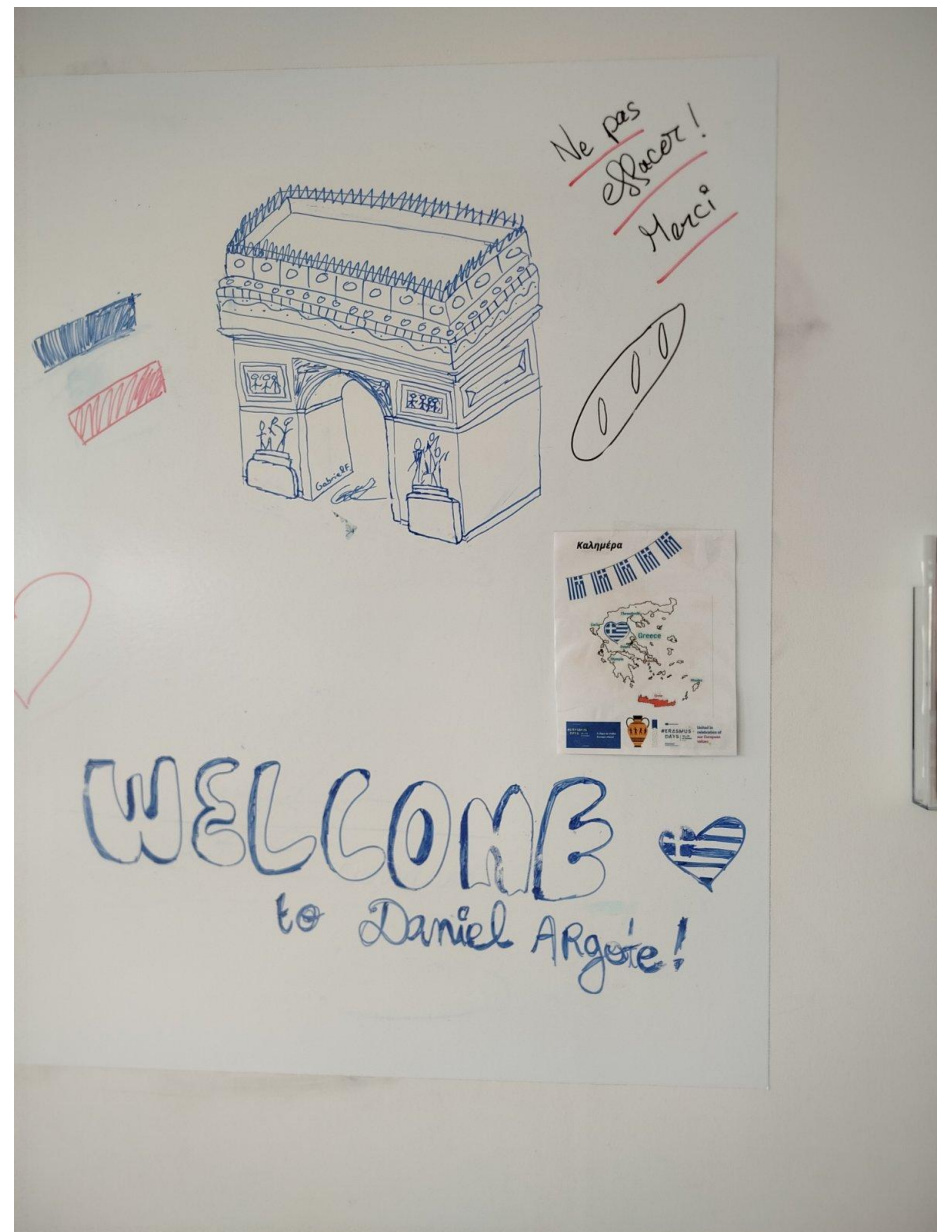 Ne pas
effacer!
Merci
GabrielF.
Καλημέρα
Greece
#ERASMUS
DAYS
WELCOME
to Daniel ARgote!